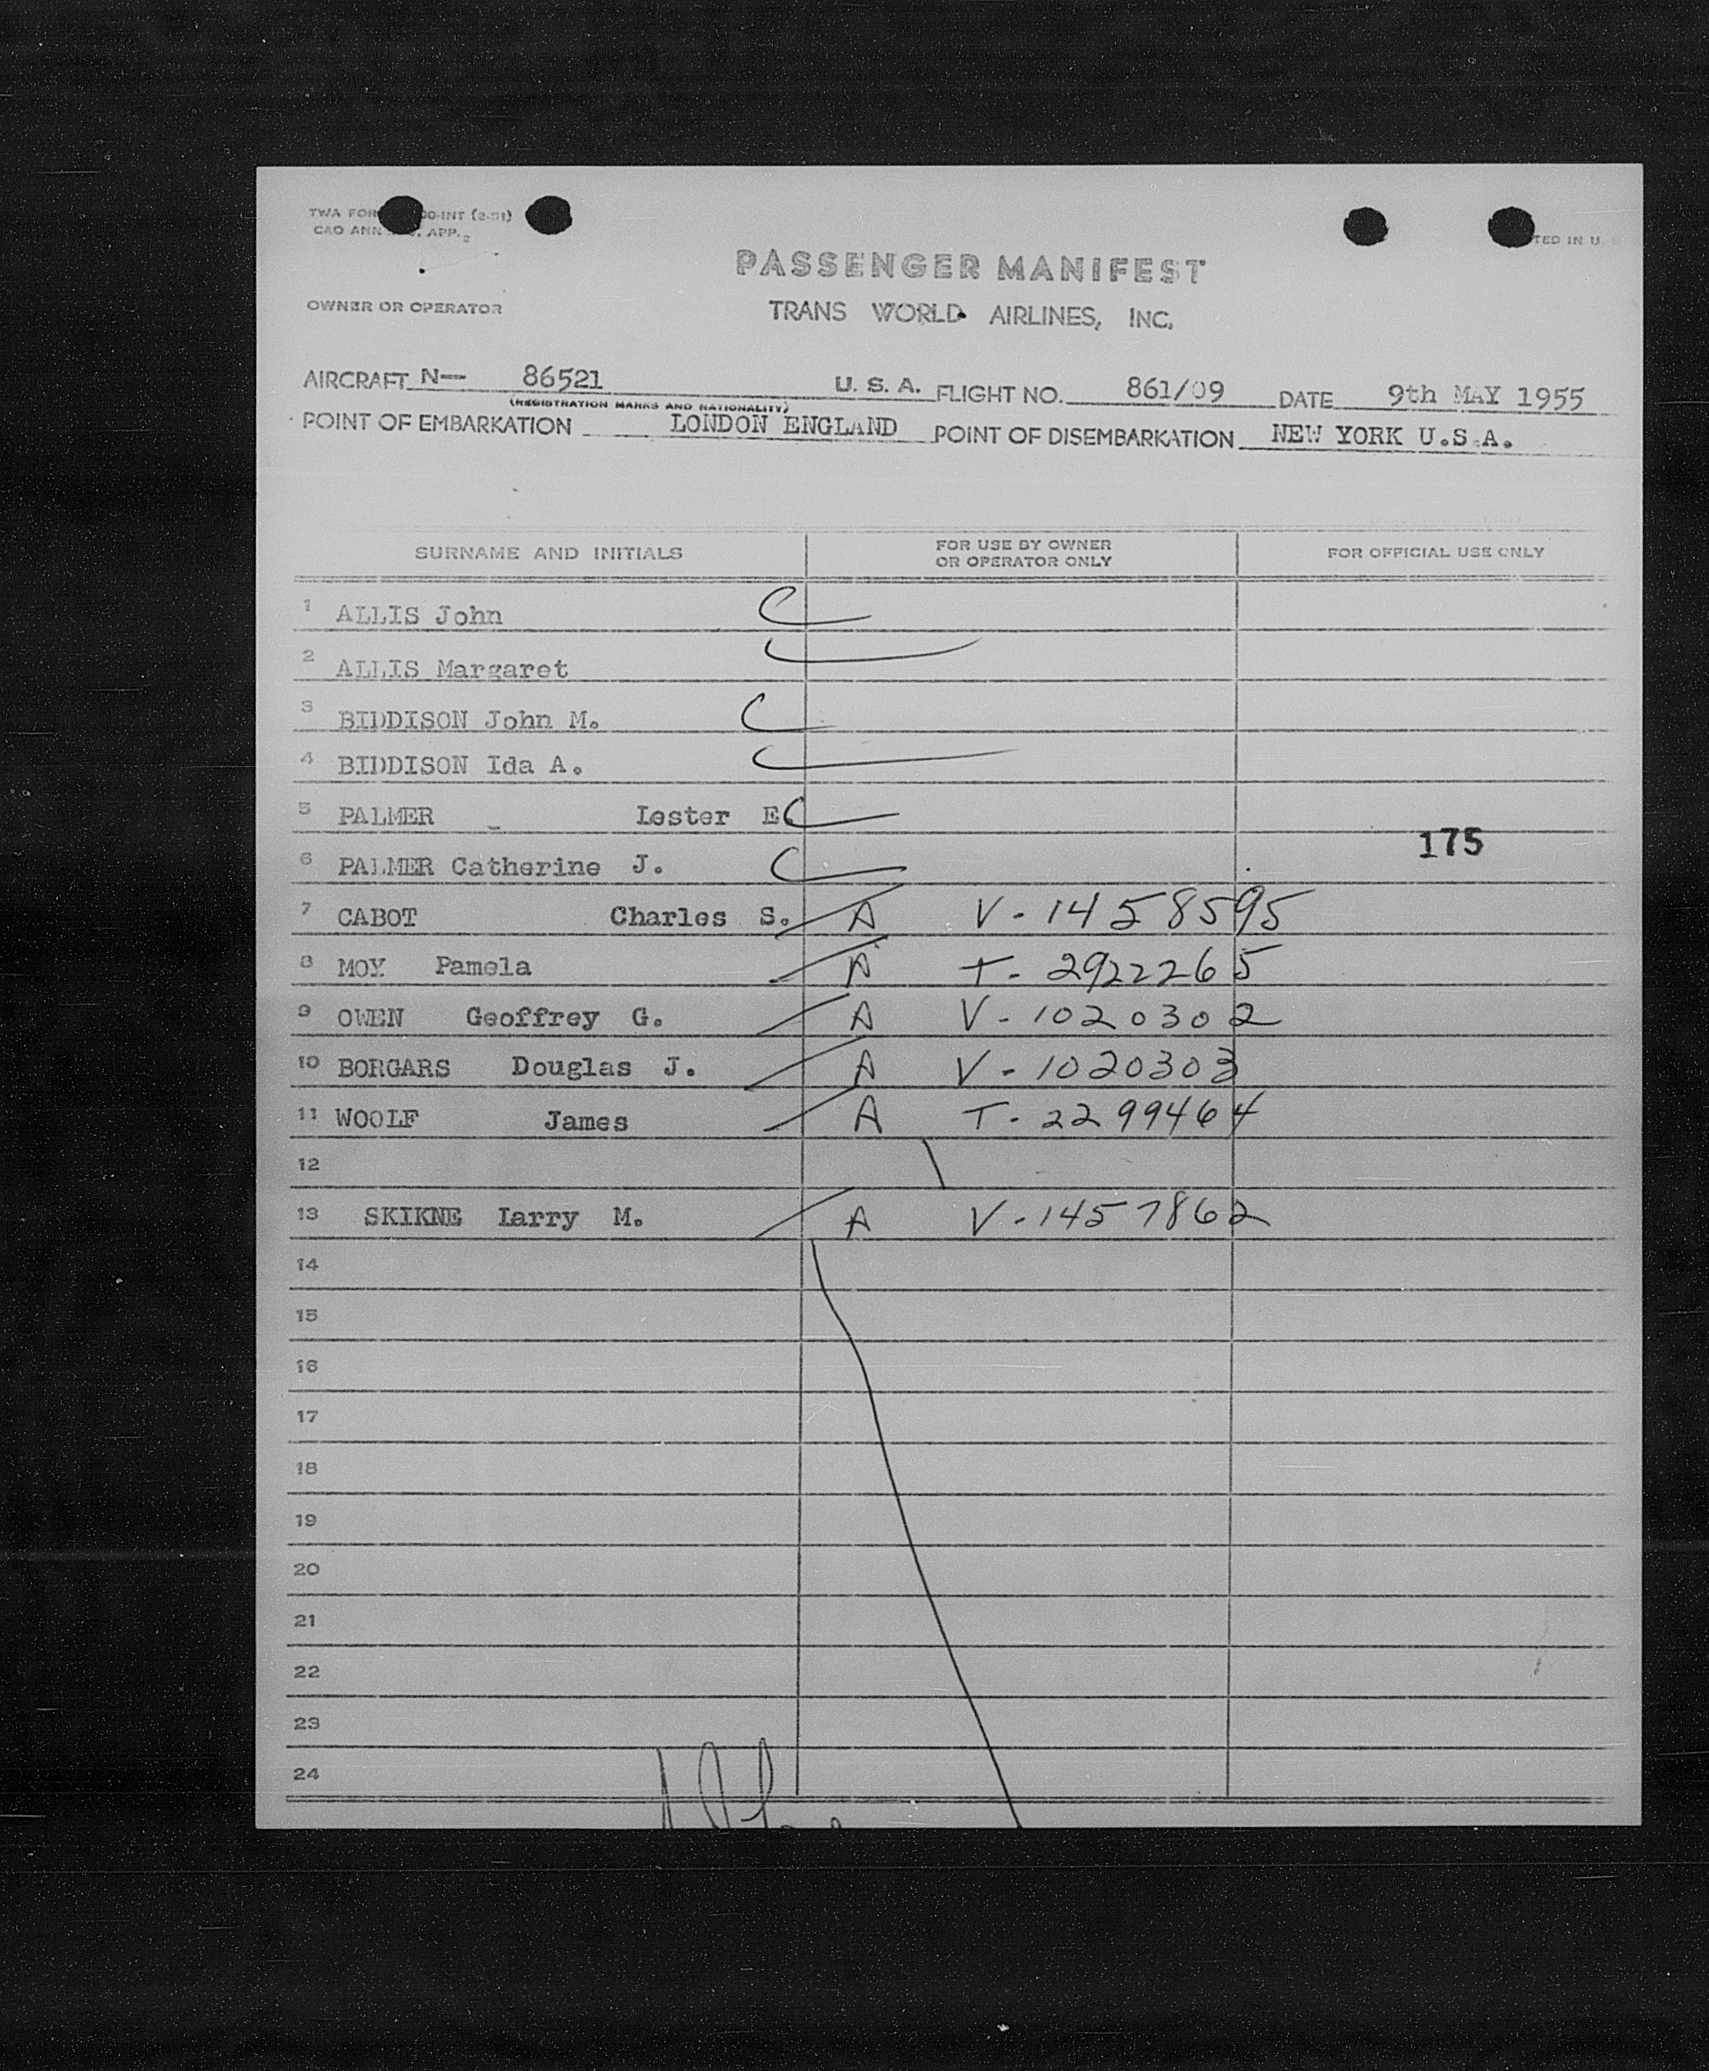 TWA FOR 00-INT (2-51)
CAO ANN APP. 2
TED IN U.
PASSENGER MANIFEST
OWNER OR OPERATOR
TRANS WORLD AIRLINES, INC.
AIRCRAFT N— 86521 U. S. A. FLIGHT NO. 861/09 DATE 9th MAY 1955
(REGISTRATION MARKS AND NATIONALITY)
POINT OF EMBARKATION LONDON ENGLAND POINT OF DISEMBARKATION NEW YORK U.S.A.
SURNAME AND INITIALS FOR USE BY OWNER OR OPERATOR ONLY FOR OFFICIAL USE ONLY
1 ALLIS John C
2 ALLIS Margaret
3 BIDDISON John M. C
4 BIDDISON Ida A.
5 PALMER Lester E. C
175
6 PALMER Catherine J. C
7 CABOT Charles S. A V-1458595
8 MOY Pamela A T-2922265
9 OWEN Geoffrey G. A V-1020302
10 BORGARS Douglas J. A V-1020303
11 WOOLF James A T-2299464
12
13 SKIKNE Larry M. A V-1457862
14
15
16
17
18
19
20
21
22
23
24